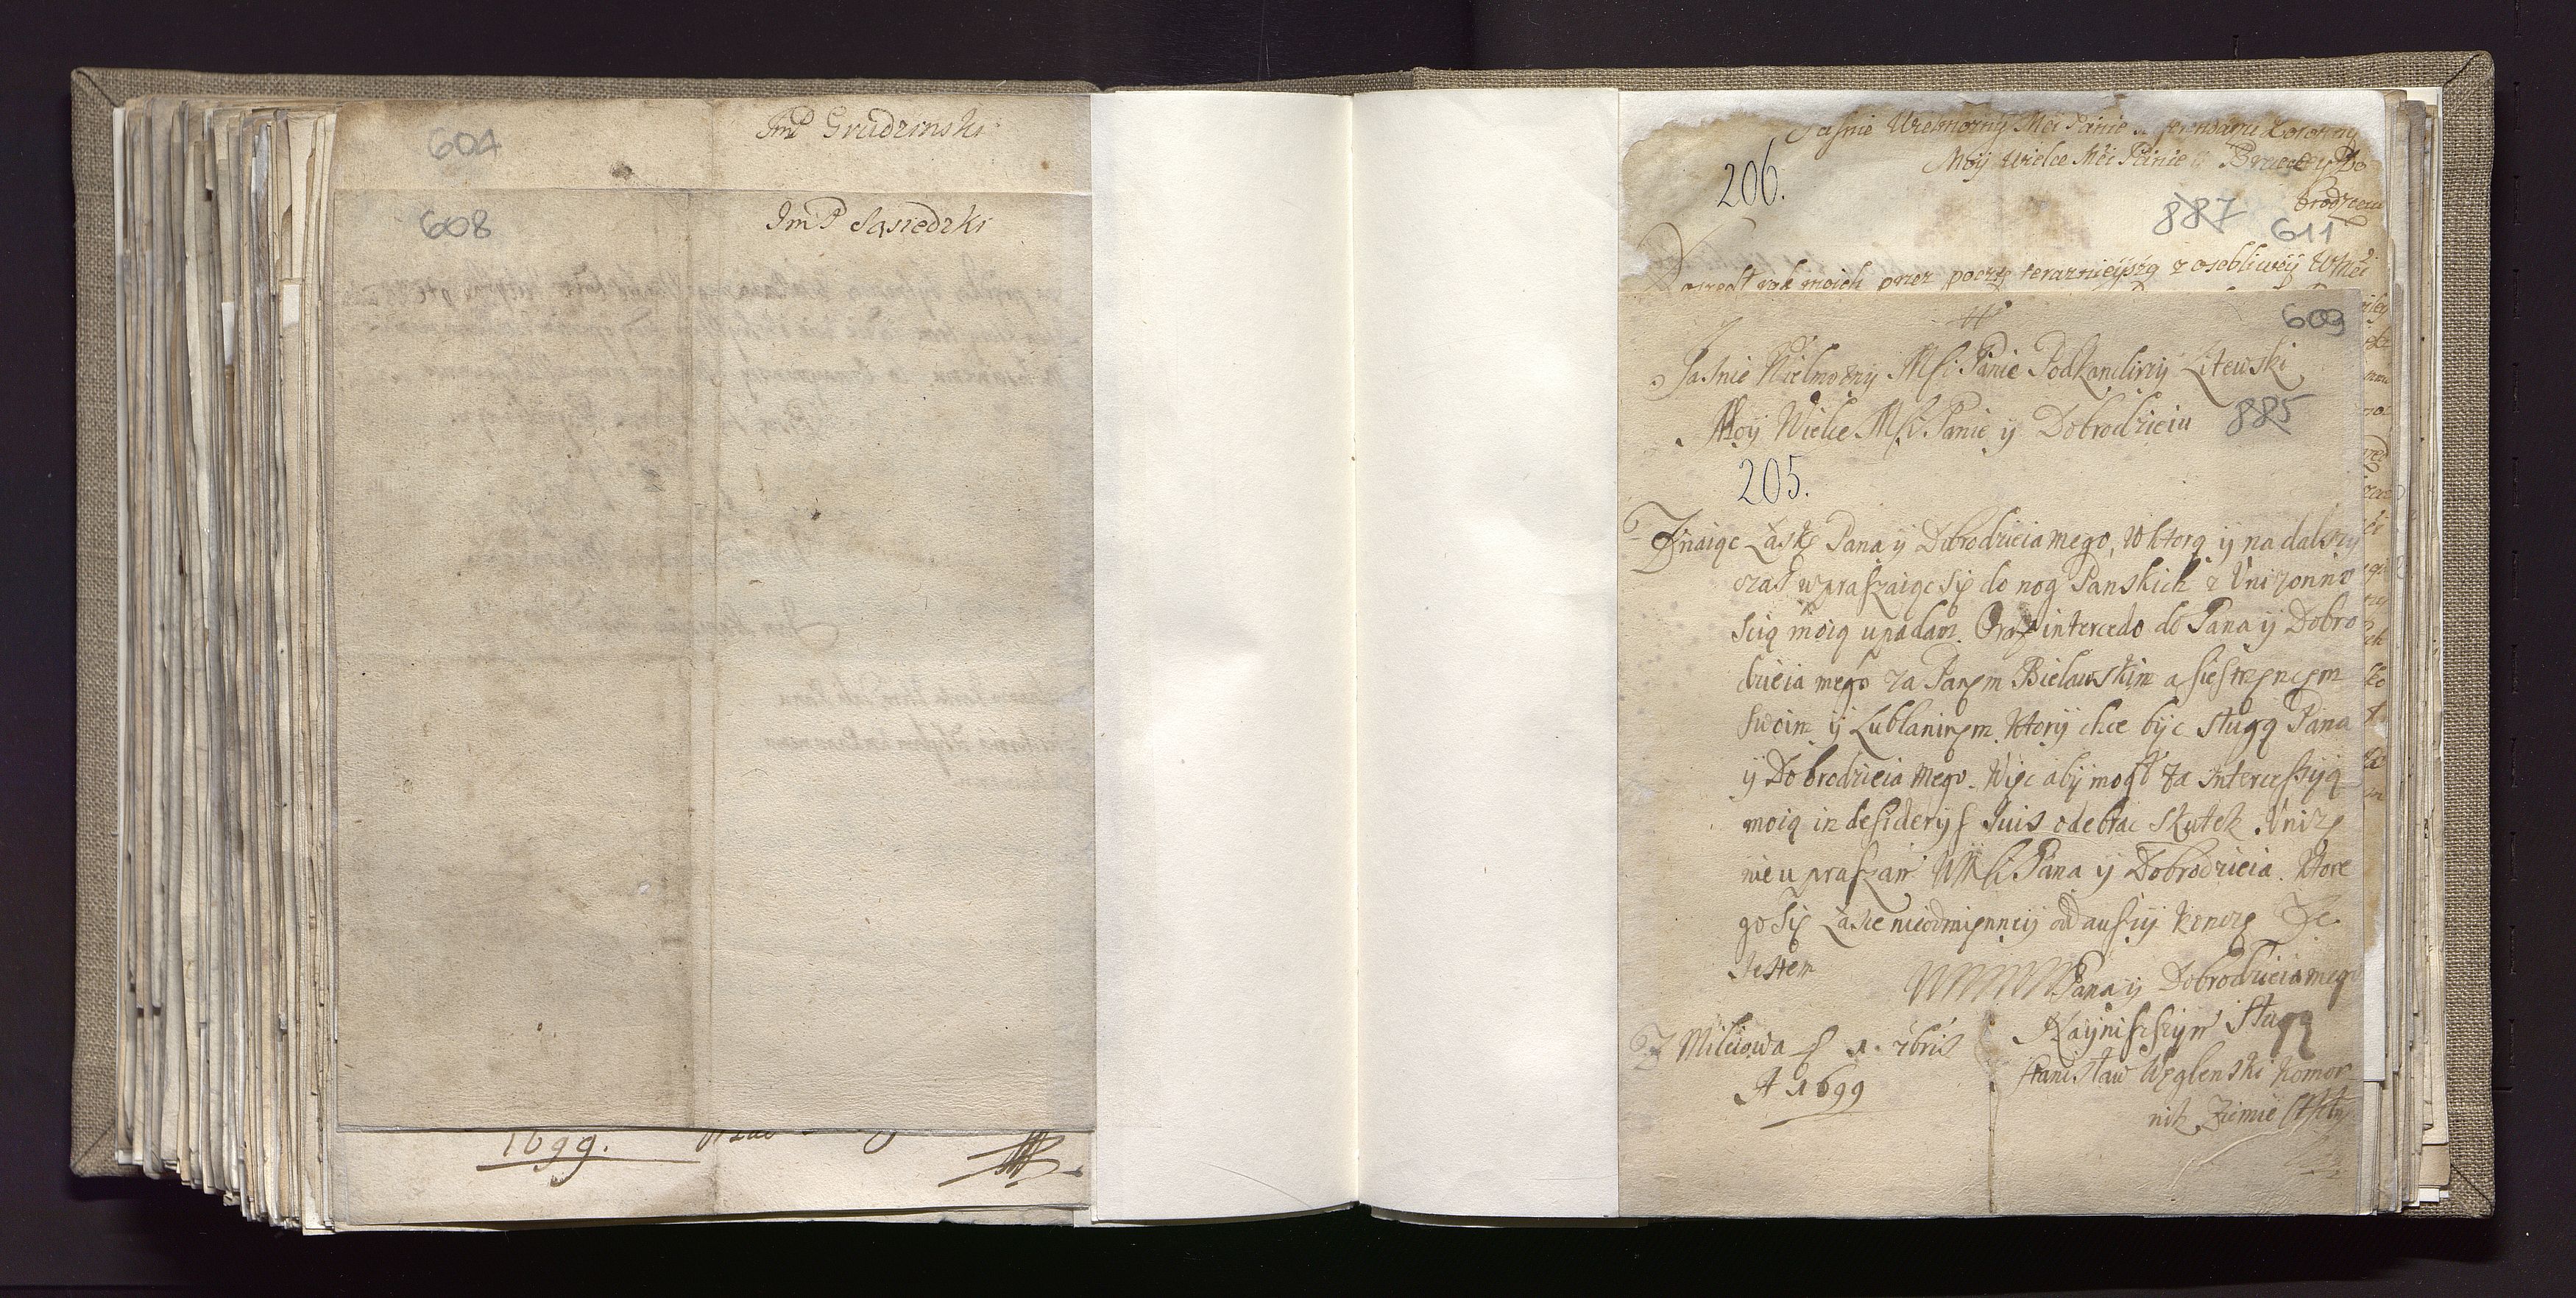 604
ImP Grudzinski
608
ImP Sąsiedzki
1699.
Jasnie Wielmozny Mći Panie Referendarzu Koronny
Moy wielce Mći Panie y Bracie y Do
brodzieiu
206.
887 611
Doszedł rąk moich przez pocztę teraznieyszą z osobliwey WMći
609
Jasnie Wielmozny Mſci Panie Podkanclirzy Litewski
Moy Wielce Mſci Panie y Dobrodzieiu
885
205.
Znaiąc Łaskę Pana y Dobrodzieia mego, w ktorą y na dalszy
czas wpraszaiąc się do nog Panskich z Vnizonno
scią moią upadam. Oraz intercedo do Pana y Dobro
dzieia mego za Panęm Bielawskim a siestrzęncęm
swoim y Lublaninęm. Ktory chce byc sługą Pana
y Dobrodzieia mego. Więc aby mogł za Intercessyią
moią in desiderys suis odebrac skutek. Vnizę
nie upraszam WMſci Pana y Dobrodzieia. Ktore
go się Łasce nieodmięnney oddawszy koncze Ze
Jestem
Pana y Dobrodzieia mego
Z Milciowa d 1. 7bris
A 1699
Nayniszszym sługą
Stanisław Węglenski Komor
nik Ziemie